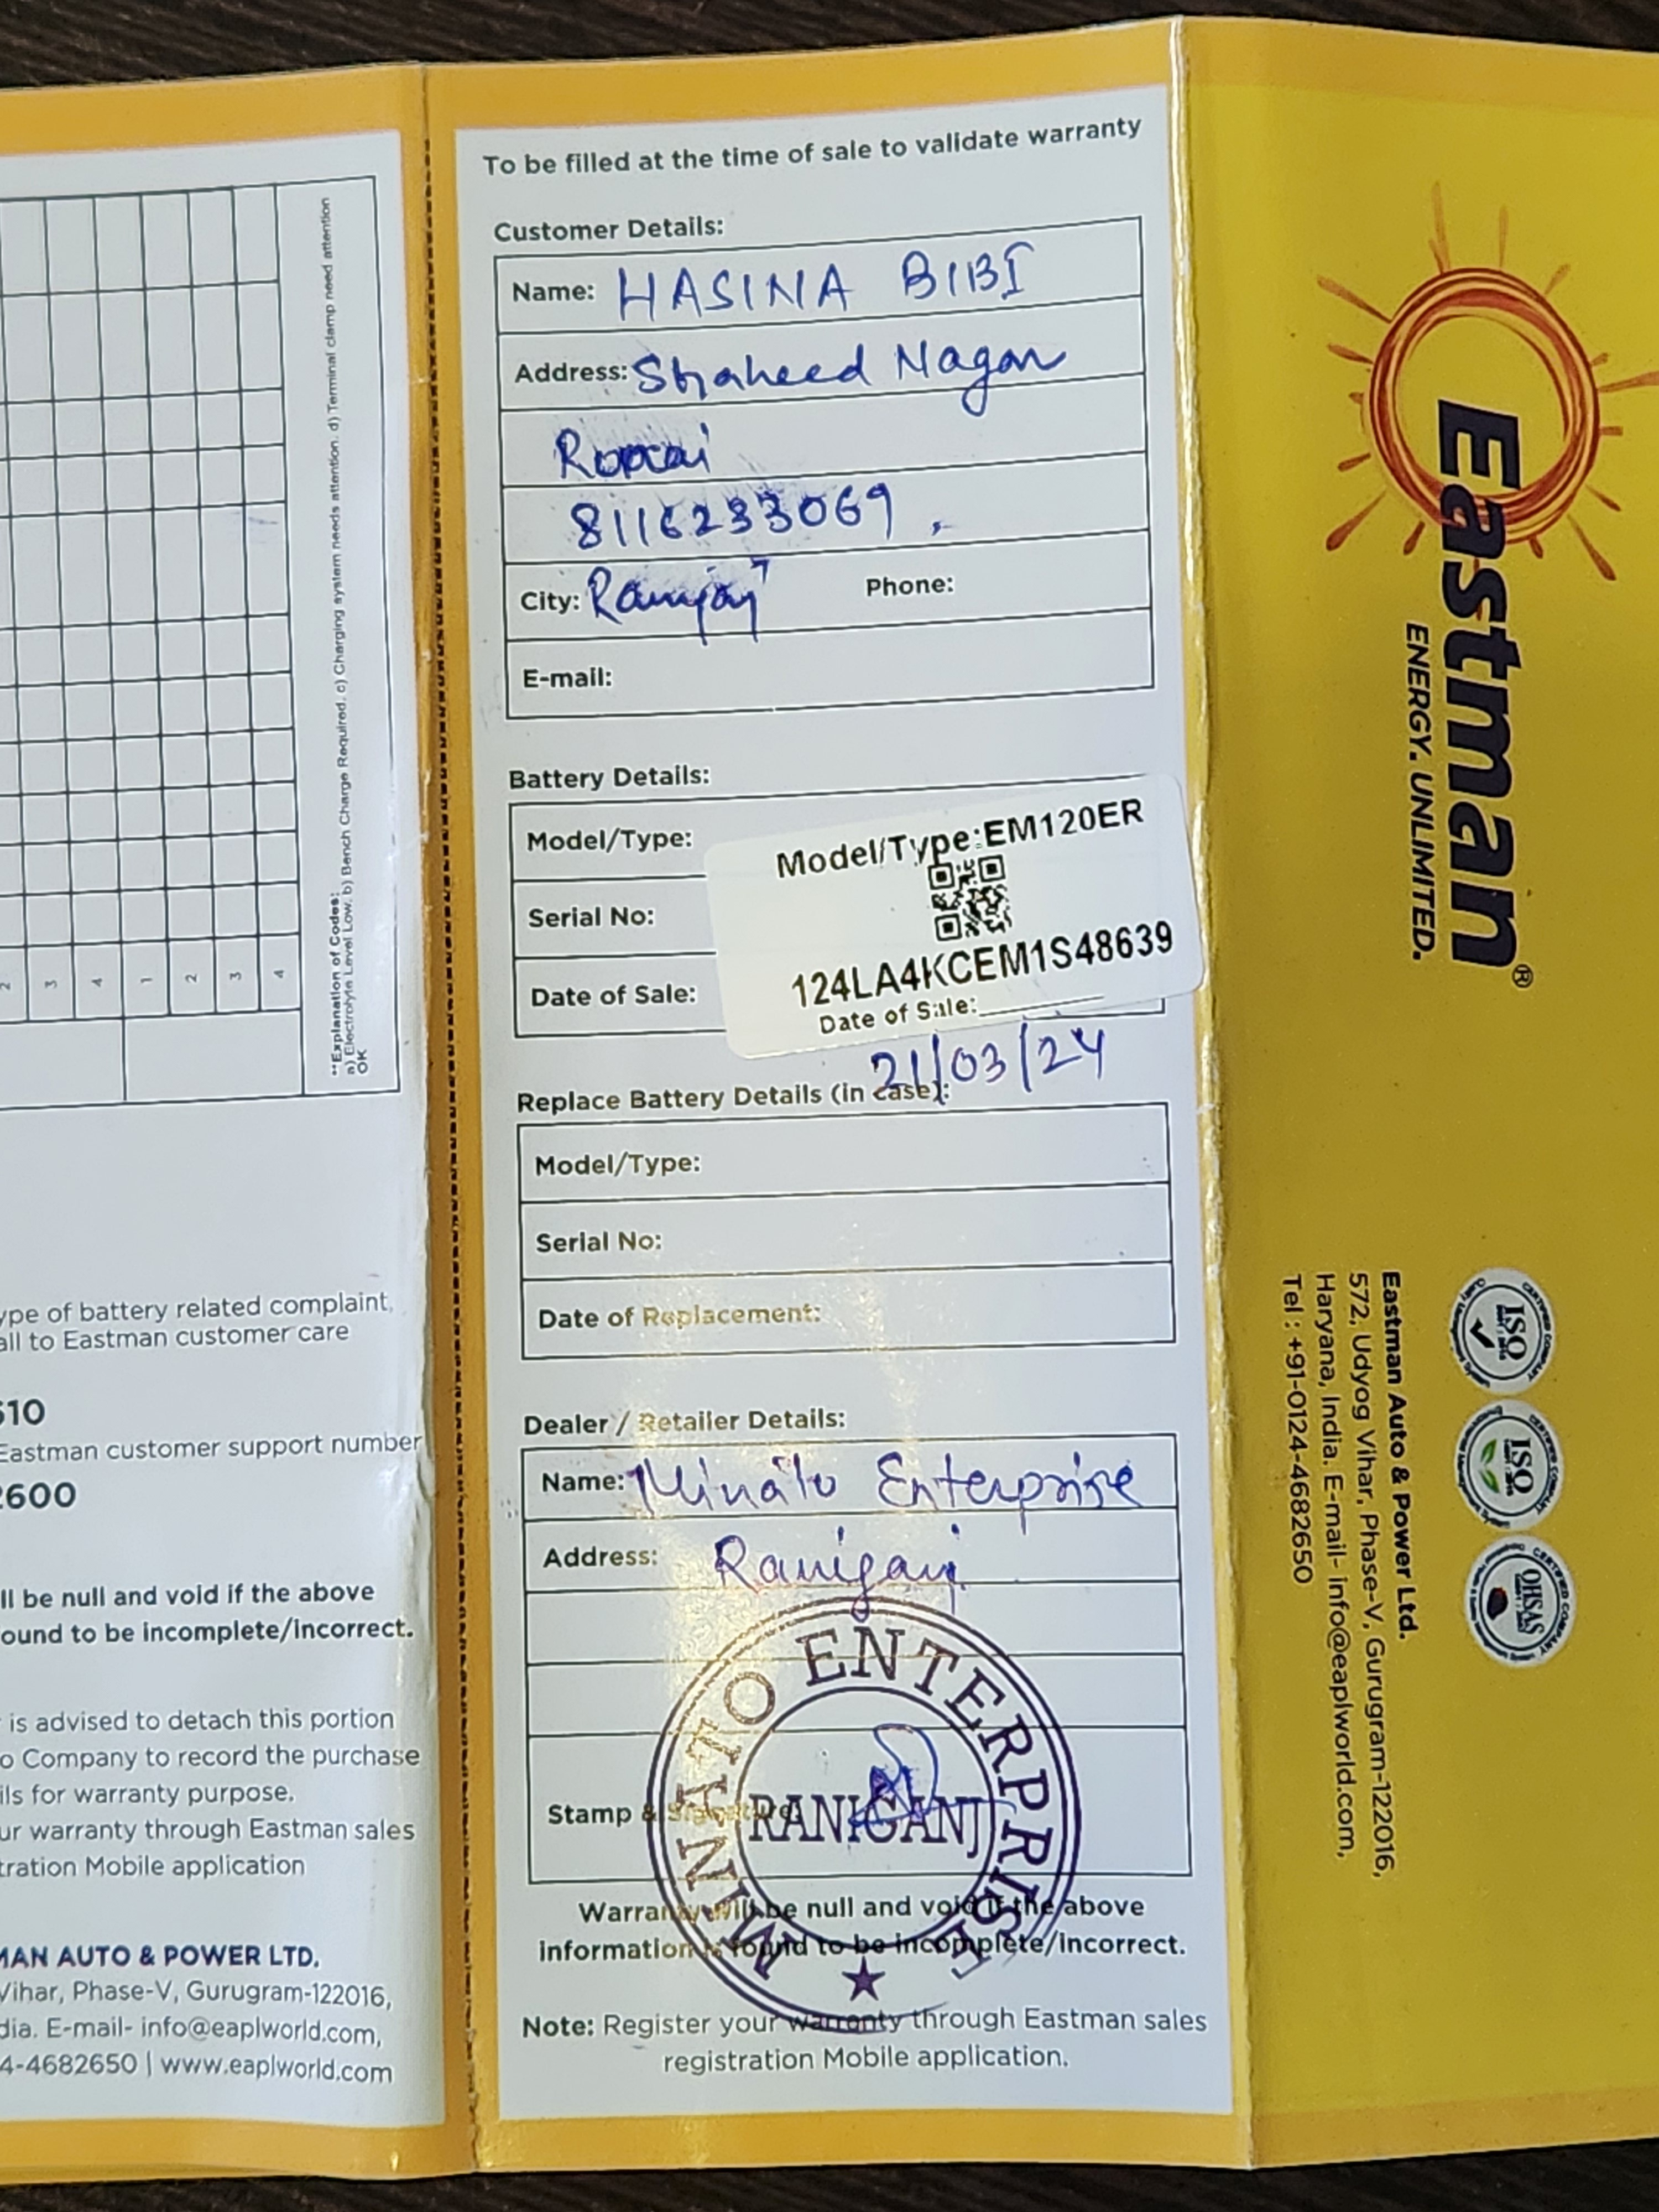 2
3
4
1
2
3
4
**Explanation of Codes:
a) Electrolyte Level Low. b) Bench Charge Required. c) Charging system needs attention. d) Terminal clamp need attention
OK
ype of battery related complaint,
all to Eastman customer care
510
Eastman customer support number
2600
ll be null and void if the above
ound to be incomplete/incorrect.
is advised to detach this portion
o Company to record the purchase
ils for warranty purpose.
ur warranty through Eastman sales
tration Mobile application
MAN AUTO & POWER LTD.
Vihar, Phase-V, Gurugram-122016,
dia. E-mail- info@eaplworld.com,
4-4682650 | www.eaplworld.com
To be filled at the time of sale to validate warranty
Customer Details:
Name: HASINA BIBI
Address: Shaheed Nagar
8116233069
City: Phone:
E-mail:
Battery Details:
Model/Type:
Serial No:
Date of Sale:
Model/Type:EM120ER
124LA4KCEM1S48639
Date of Sale:
21/03/24
Replace Battery Details (in case):
Model/Type:
Serial No:
Date of Replacement:
Dealer / Retailer Details:
Name: Minato Enterprise
Address: Raniganj
Stamp & Signature
MINATO ENTERPRISE
RANIGANJ
Warranty will be null and void if the above
information is found to be incomplete/incorrect.
Note: Register your warranty through Eastman sales
registration Mobile application.
Eastman®
ENERGY. UNLIMITED.
ISO
ISO
OHSAS
Eastman Auto & Power Ltd.
572, Udyog Vihar, Phase-V, Gurugram-122016,
Haryana, India. E-mail- info@eaplworld.com,
Tel : +91-0124-4682650